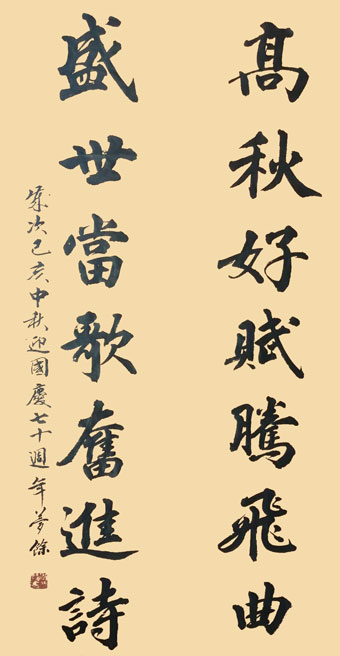 高秋好賦騰飛曲
盛世當歌奮進詩
歲次己亥中秋迎國慶七十週年夢餘